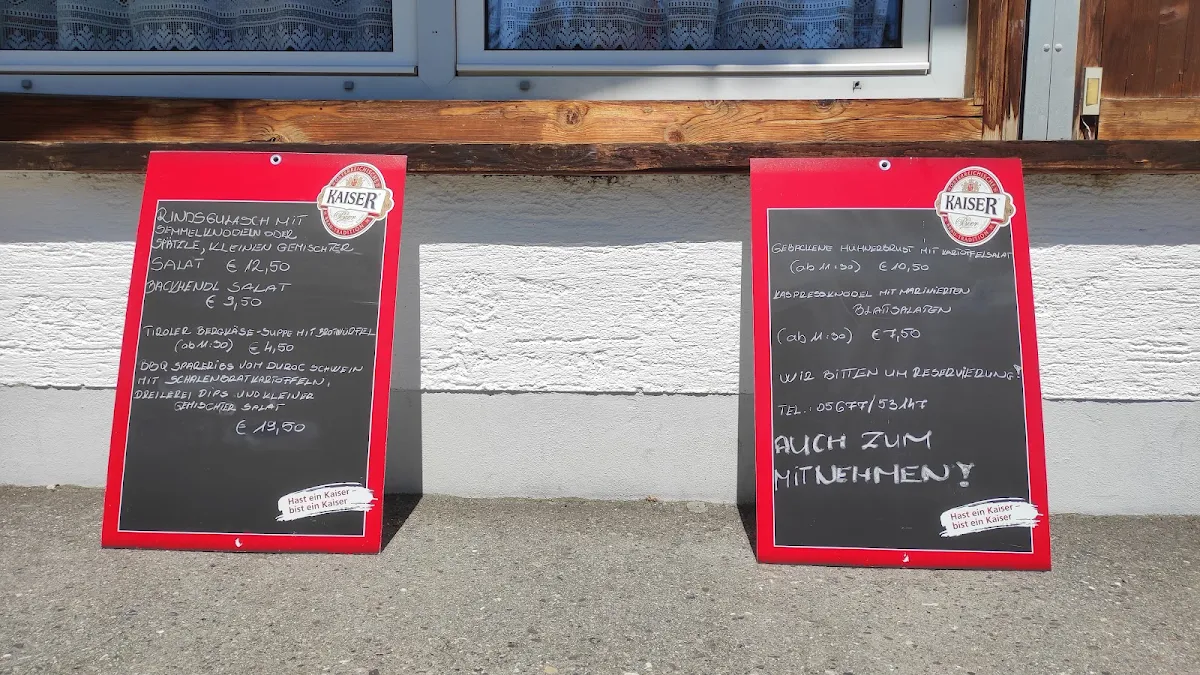 ÖSTERREICHISCHE
KAISER
Bier
BRAUTRADITION
RINDSGULASCH MIT
SEMMELKNÖDELN ODER
SPÄTZLE, KLEINEN GEMISCHTER
SALAT € 12,50
BACKHENDL SALAT
€ 9,50
TIROLER BERGKÄSE-SUPPE MIT BROTWÜRFEL
(ab 11:30) € 4,50
BBQ SPARERIBS VOM DUROC SCHWEIN
MIT SCHALENBRATKARTOFFELN,
DREILEREI DIPS UND KLEINER
GEMISCHTER SALAT
€ 19,50
Hast ein Kaiser
bist ein Kaiser
ÖSTERREICHISCHE
KAISER
Bier
BRAUTRADITION
GEBACKENE HÜHNERBRUST MIT KARTOFFELSALAT
(ab 11:30) € 10,50
KASPRESSKNÖDEL MIT MARINIERTEN
BLATTSALATEN
(ab 11:30) € 7,50
WIR BITTEN UM RESERVIERUNG!
TEL.: 05677/53147
AUCH ZUM
MITNEHMEN!
Hast ein Kaiser
bist ein Kaiser